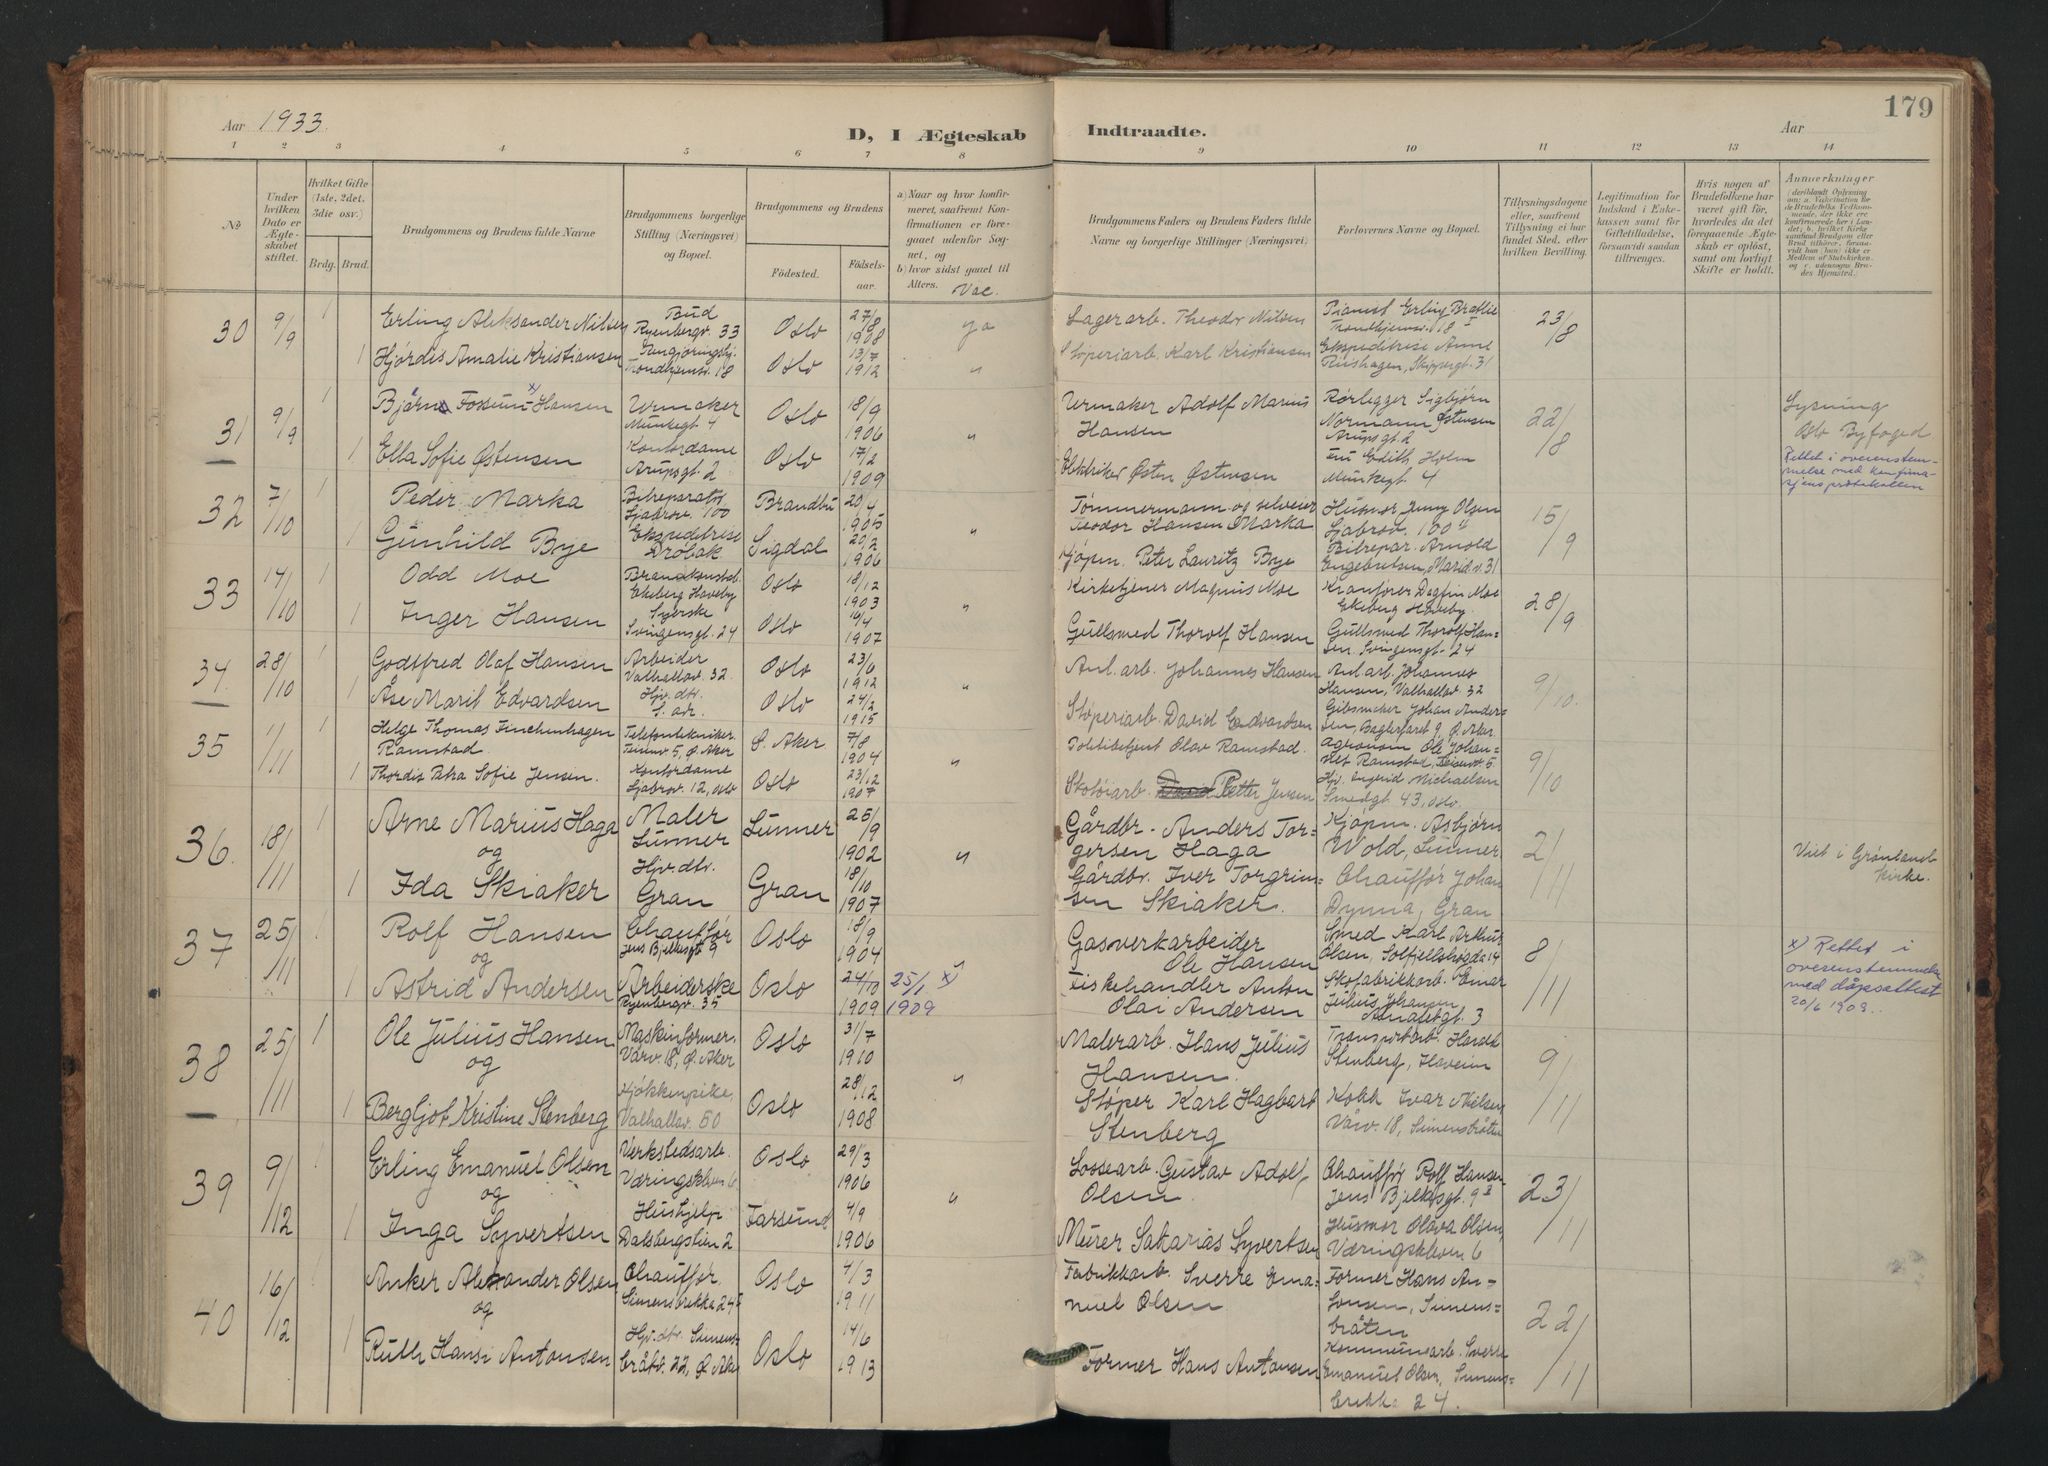 179
Aar 1933.
D, I Ægteskab Indtraadte.
Aar
1 2 3 4 5 6 7 8 9 10 11 12 13 14
No
Under hvilken Dato er Ægteskabet stiftet.
Hvilket Gifte (1ste, 2det, 3die osv.)
Brdg. Brud.
Brudgommens og Brudens fulde Navne
Brudgommens borgerlige Stilling (Næringsvei) og Bopæl.
Brudgommens og Brudens
Fødested.
Fødselsaar.
a) Naar og hvor konfirmeret, saafremt Konfirmationen er foregaaet udenfor Sognet, og
b) hvor sidst gaaet til Alters.
Vac.
Brudgommens Faders og Brudens Faders fulde Navne og borgerlige Stillinger (Næringsvei)
Forlovernes Navne og Bopæl.
Tillysningsdagene eller, saafremt Tillysning ei har fundet Sted, efter hvilken Bevilling.
Legitimation for Indskud i Enkekassen samt for Giftetilladelse, forsaavidt saadan tiltrænges.
Hvis nogen af Brudefolkene har været gift før, hvorledes da det foregaaende Ægteskab er opløst, samt om lovligt Skifte er holdt.
Anmærkninger
30 9/9 1 Erling Aleksander Nilsen Bud Ryenbergv. 33 Oslo 27/8 1908 ja Lagerarb. Theodor Nilsen Pianist Erling Bratlie Trondhjemsv. 18 I 23/8
1 Hjördis Amalie Kristiansen Rengjøringshj. Trondhjemsv. 18 Oslo 13/7 1912 " Støperiarb. Karl Kristiansen Ekspeditrise Anne Riishagen, Skippergt. 31
31 9/9 1 Bjørn Fossum x) Hansen Urmaker Munkegt 4 Oslo 18/9 1906 " Urmaker Adolf Marius Hansen Rørlegger Sigbjørn Normann Østensen Arupsgt 2 22/8 Lysning Oslo Byfoged
1 Ella Sofie Østensen Kontordame Arupsgt. 2 Oslo 17/2 1909 Elektriker Østen Østensen Fru Edith Holm Munkegt 4 Rettet i overenstemmelse med konfirmasjonsprotokollen
32 7/10 1 Peder Marka Bilreparatør Ljabrov. 100 Brandbu 20/4 1905 Tømmermann og selveier Teodor Hansen Marka Husmor Jenny Olsen Ljabrov. 100 15/9
1 Gunhild Bye Ekspeditrise Drøbak Sigdal 20/2 1906 " Kjøpm. Peter Lauritz Bye Bilrepar. Arnold Engebretsen, Marid.v. 31
33 14/10 1 Odd Moe Brandkonstab. Ekeberg Haveby Oslo 18/12 1903 Kirketjener Magnus Moe Kranfører Dagfin Moe Ekeberg Haveby. 28/9
1 Inger Hansen Syerske Svingensgt. 24 Oslo 14/4 1907 " Gullsmed Thorolf Hansen Gullsmed Thorolf Hansen Svingensgt 24
34. 28/10 1 Godtfred Olaf Hansen Arbeider Valhallav. 32 Oslo 23/6 1912 Anl. arb. Johannes Hansen Anl. arb. Johannes Hansen, Valhallav. 32 9/10.
1 Åse Marit Edvardsen Hjv. dtr. S. adr. Oslo 24/2 1915 " Støperiarb. David Edvardsen Gibsmaker Johan Andersen, Baglerfaret 9, Ø. Aker.
35 1/11 1 Helge Thomas Finchenhagen Ramstad. Telefontekniker. 5, Ø. Aker S. Aker 7/8 1904 Politibetjent Olav Ramstad. Agronom Ole Johannes Ramstad, 5. 9/10
1 Thordis Sofie Jensen. Kontordame Ljabrov. 12, Oslo Oslo 23/12 1907 " Skotøiarb. Petter Jensen Hjv. Ingerid Michaelsen Smedgt. 43, Oslo.
36. 18/11 1 Arne Marius Haga Maler Lunner Lunner 25/9 1902 Gårdbr. Anders Torgersen Haga Kjøpm. Asbjørn Wold, Lunner 2/11
og
1 Ida Skiaker Hjv. dtr. Gran Gran 18/10 1907 " Gårdbr. Iver Torgrimsen Skiaker. Chauffør Johan Dynna, Gran Viet i Grønlands kirke.
37 25/11 1 Rolf Hansen Chauffør Jens Bjelkesgt 9 Oslo 18/9 1904 Gasverkarbeider Ole Hansen Smed Karl Arthur Olsen, Solfjellshøgda 14 8/11
og
1 Astrid Andersen Arbeiderske Ryenbergv. 35 Oslo 24/10 1909 25/1 x) 1909 " Fiskehandler Anton Olai Andersen Skofabrikkarb. Einar Julius Johansen 3 x) Rettet i overenstemmelse med dåpsattest 20/6 1909.
38 25/11 1 Ole Julius Hansen Maskinformer. Vårv. 18, Ø. Aker Oslo 31/7 1910 Malerarb. Hans Julius Hansen. Transportarb. Harald Stenberg, 9/11
og
1 Bergljot Kristine Stenberg Kjøkkenpike Valhallav. 50 Oslo 28/12 1908 " Støper Karl Hagbart Stenberg Kokk Ivar Nielsen Vårv. 18, Simensbråten
39 9/12 1 Erling Emanuel Olsen Verkstedsarb. Væringskleven 6 Oslo 29/3 1906 Lossearb. Gustav Adolf Olsen. Chauffør Rolf Hansen Jens Bjelkesgt. 9 23/11
og
1 Inga Syvertsen Hushjelp Dalsbergstien 2 Farsund 4/9 1906 " Murer Sakarias Syvertsen Husmor Olava Olsen, Væringskleven 6
40 16/12 Anker Alexander Olsen Chauffør. Simensbrekka 24 Oslo 4/3 1911 Fabrikkarb. Sverre Emanuel Olsen Former Hans Antonsen, Simensbråten 22/11
og
1 Ruth Hansi Antonsen Hjv. dtr. Simensbråtv. 22, Ø. Aker Oslo 14/6 1913 Former Hans Antonsen Kommunearb. Sverre Emanuel Olsen, Simensbrekka 24.